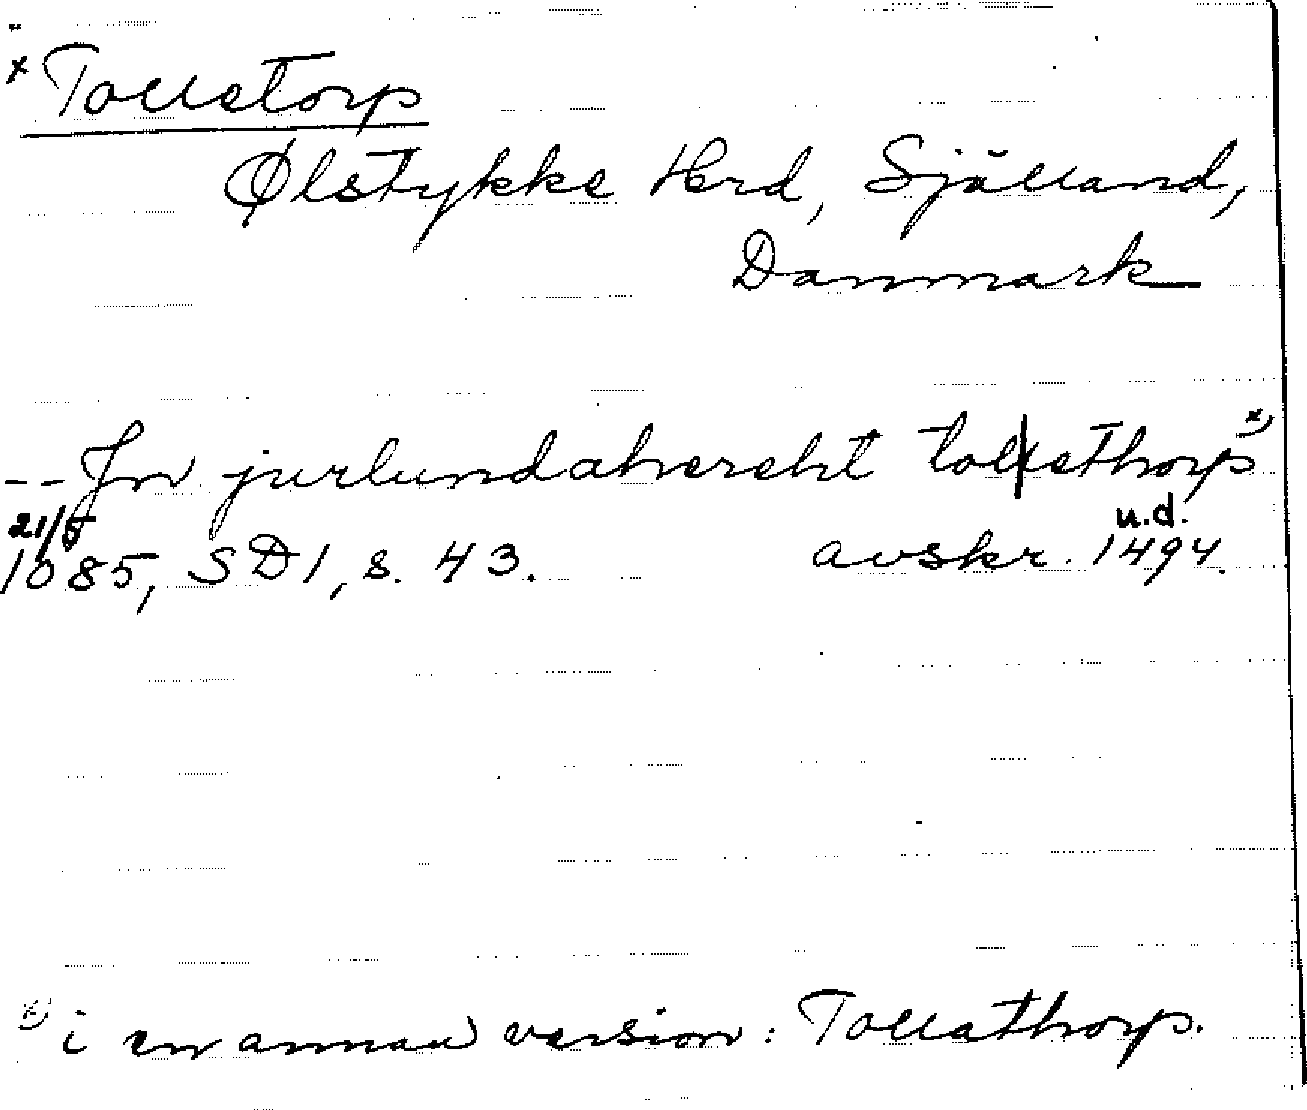 * Tolletorp
Ølstykke Herd, Själland,
Danmark
-- In jurlundakereht tollethorp x)
21/5
1085, SD1, s. 43. avskr. 1494. u.d.
x) i en annan version: Tollathorp.